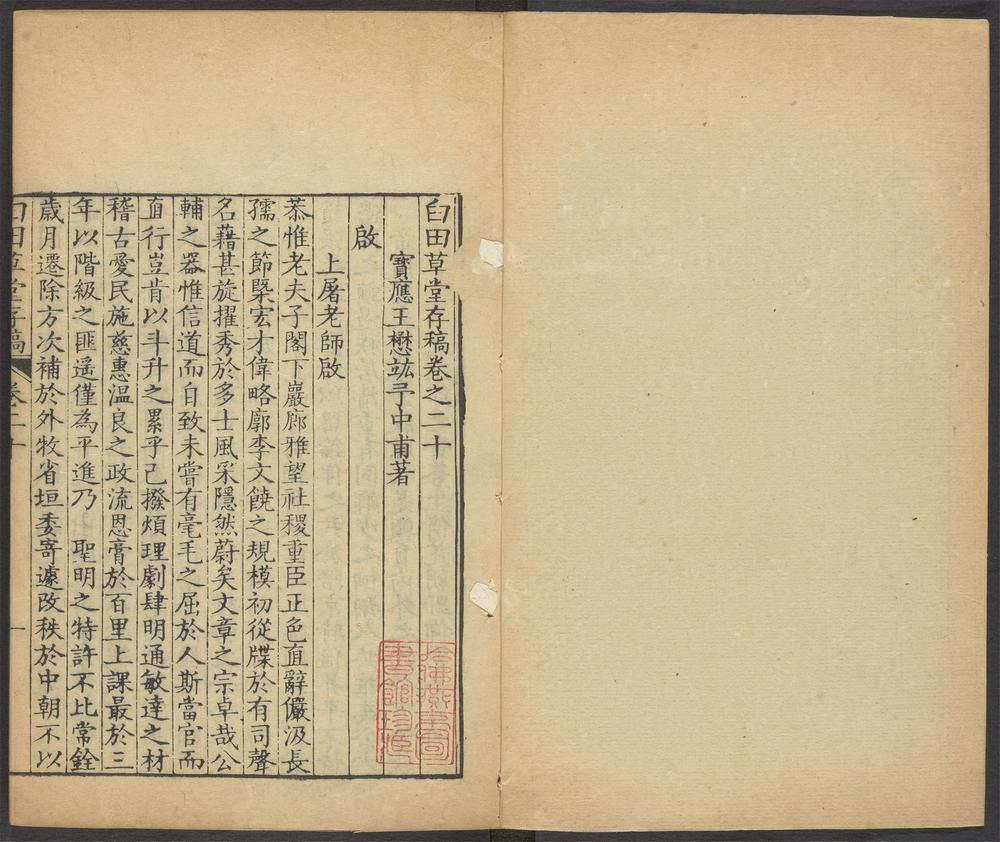 白田草堂存稿卷之二十
寶應王懋竑予中甫著
啟
上屠老師啟
恭惟老夫子閣下巖廊雅望社稷重臣正色直辭儼汲長
孺之節槩宏才偉略廓李文饒之規模初從牒於有司聲
名藉甚旋擢秀於多士風采隱然蔚矣文章之宗卓哉公
輔之器惟信道而自致未嘗有毫毛之屈於人斯當官而
直行豈肯以斗升之累乎己撥煩理劇肆明通敏達之材
稽古愛民施慈惠溫良之政流恩膏於百里上課最於三
年以階級之匪遥僅為平進乃 聖明之特許不比常銓
歲月遷除方次補於外牧省垣委寄遽改秩於中朝不以
白田草堂存稿 卷二十 一
哈佛燕京圖
書館珍藏